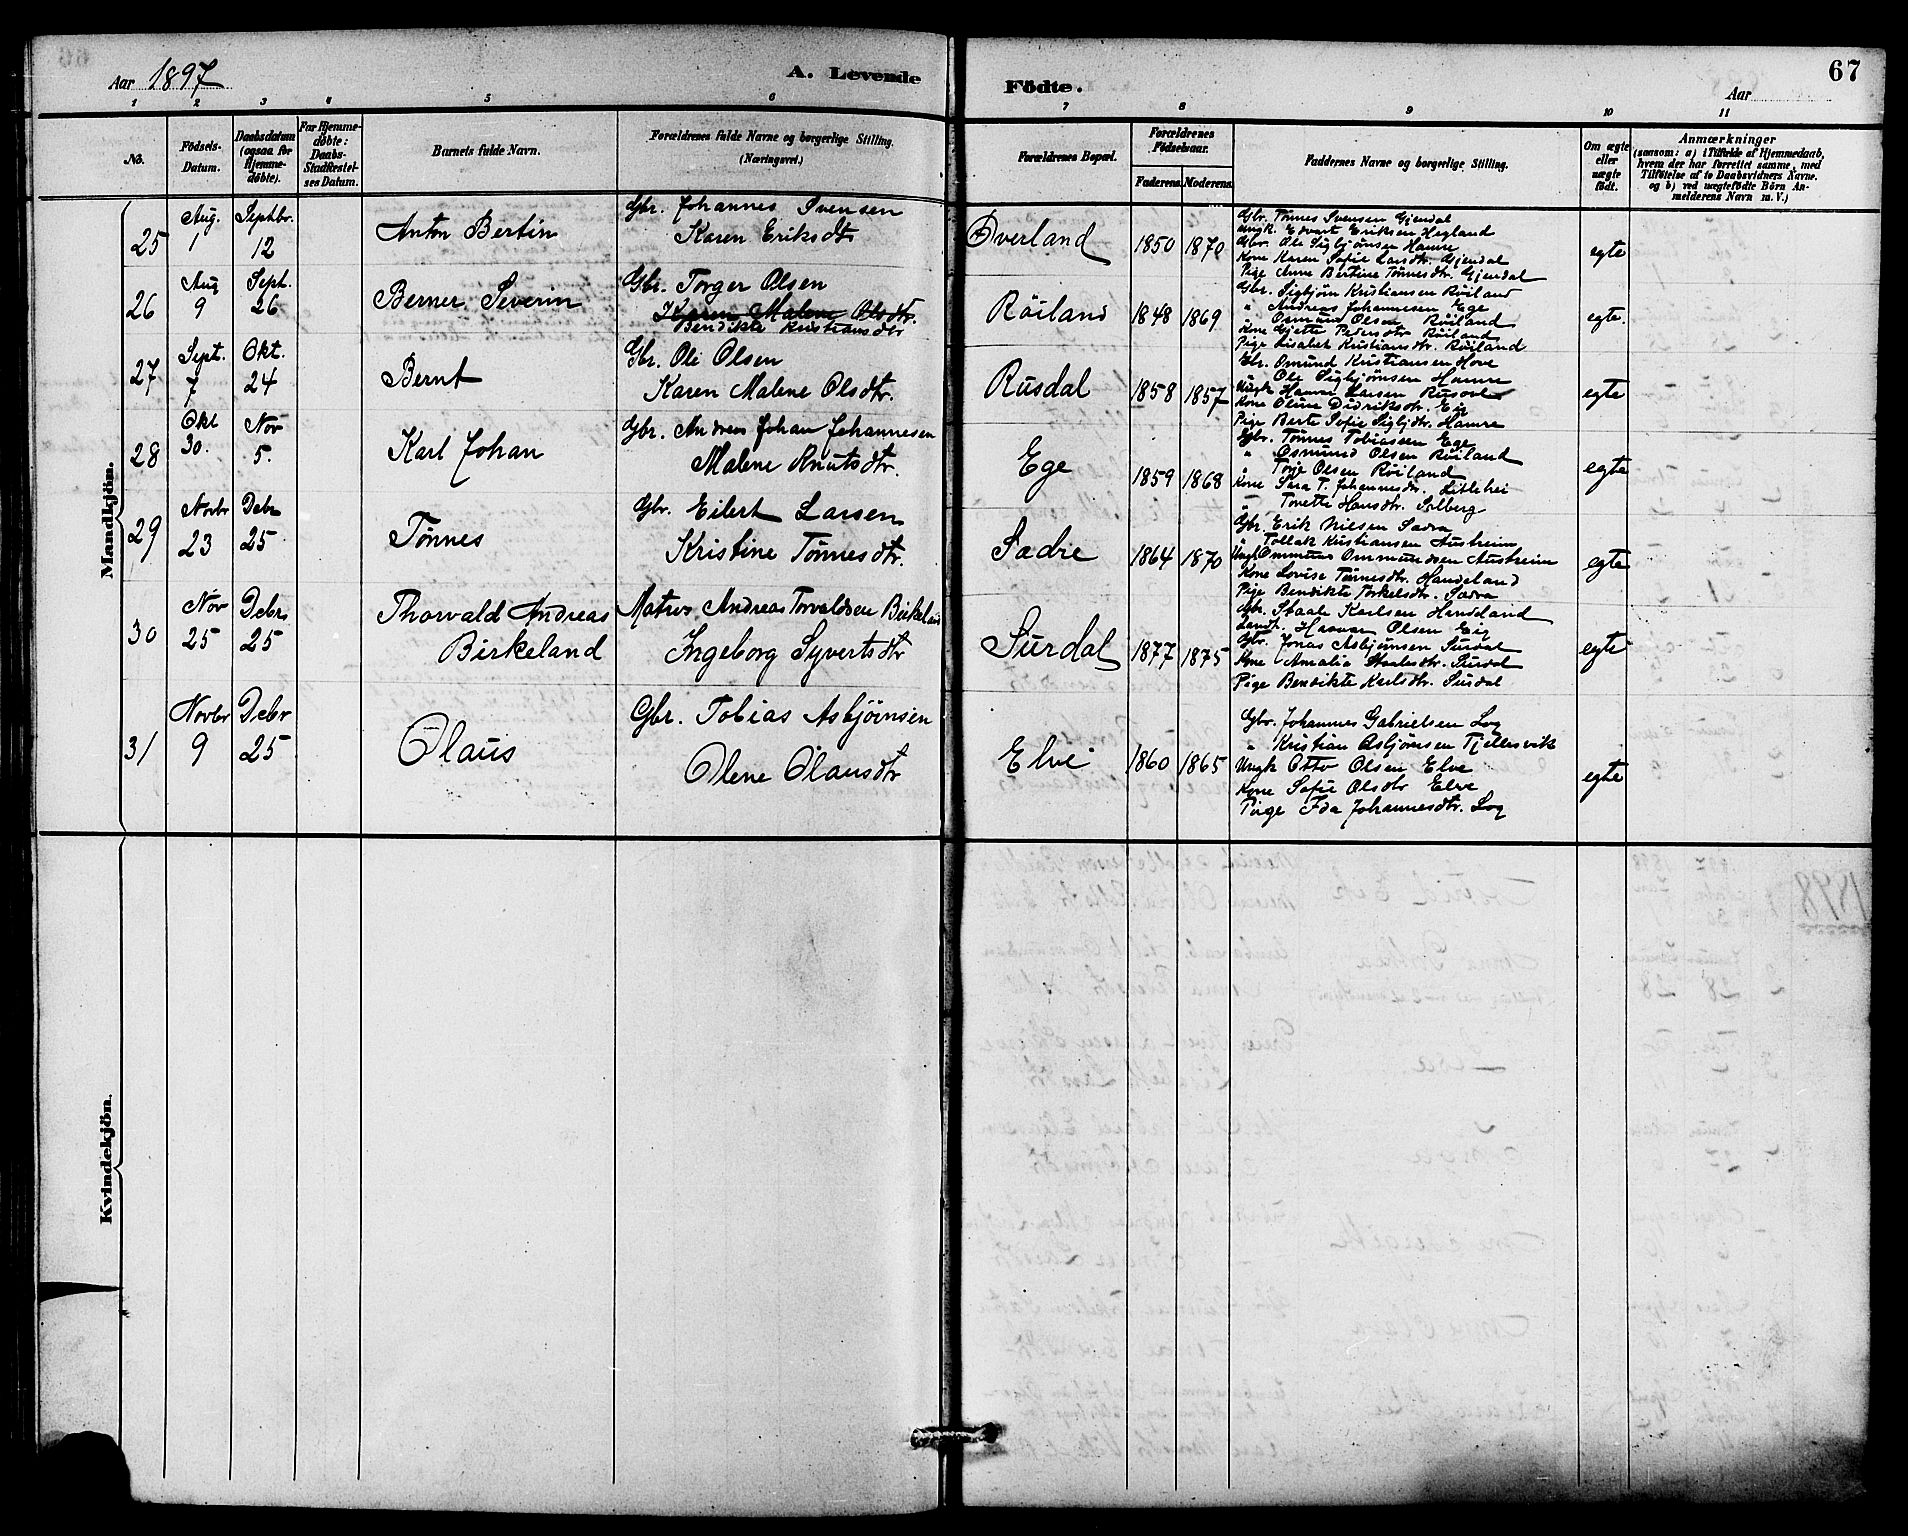 Aar 1897
A. Levende
Födte.
67
Aar
1 2 3 4 5 6 7 8 9 10 11
No.
Födsels-
Datum.
Daabsdatum
(ogsaa for
Hjemme-
döbte).
For Hjemme-
döbte:
Daabs-
Stadfæstel-
ses Datum.
Barnets fulde Navn.
Forældrenes fulde Navne og borgerlige Stilling.
(Næringsvei.)
Forældrenes Bopæl.
Forældrenes
Födselsaar.
Faderens. Moderens.
Faddernes Navne og borgerlige Stilling.
Om ægte
eller
uægte
födt.
Anmærkninger
(saasom: a) i Tilfælde af Hjemmedaab,
hvem der har forrettet samme, med
Tilföielse af to Daabsvidners Navne,
og b) ved uægtefödte Börn An-
melderens Navn m. V.)
Mandkjön.
25
Aug.
1
Septbr.
12
Anton Bertin
Gbr. Johannes Svensen
Karen Eriksdtr
Øverland
1850 1870
Gbr. Tønnes Svensen Gjendal
Ungk. Edvart Eriksen Hegland
Gbr. Ole Sigbjørnsen Hamre
Kone Karen Sofie Larsdtr. Gjendal
Pige Anne Bertine Tønnesdtr. Gjendal
egte
26
Aug
9
Sept.
26
Berner Severin
Gbr. Torger Olsen
Karen Malene Olsdtr.
Bendikte Kristiansdtr
Røiland
1848 1869
Gbr. Sigbjørn Kristiansen Røiland
" Andreas Johannesen Ege
" Osmund Olsen Røiland
Kone Gjette Pedersdtr Røiland
Pige Lisabet Kristiansdtr. Røiland
egte.
27
Sept.
7
Okt.
24
Bernt
Gbr. Ole Olsen
Karen Malene Olsdtr.
Rusdal
1858 1857
Gbr. Osmund Kristiansen Hove
" Ole Sigbjørnsen Hamre
Ungk Larsen
Kone Oline Didriksdtr. Eig
Pige Berte Sofie Sigbjdtr. Hamre
egte
28
Okt
30.
Nov
5.
Karl Johan
Gbr. Andreas Johan Johannesen
Malene Knutsdtr.
Ege
1859 1868
Gbr. Tønnes Tobiassen Ege
" Osmund Olsen Røiland
" Toje Olsen Røiland
Kone Sara T. Johannesdtr. Litlehei
" Tonette Hansdtr. Solberg
egte
29
Novbr
23
Debr
25
Tønnes
Gbr. Eilert Larsen
Kristine Tønnesdtr.
Sædre
1864 1870
Gbr. Erik Nilsen Sædra
" Tollak Kristiansen Austreim
Ungk Ommund Ommundsen Austreim
Kone Lovise Tønnesdtr. Handeland
Pige Bendikte Torkelsdtr. Sædra
egte
30
Nov
25
Debr
25
Thorvald Andreas
Birkeland
Matros Andreas Torvaldsen Birkeland
Ingeborg Syvertsdtr
Surdal
1877 1875
Gbr. Staale Karlsen Handeland
Landh. Olsen Eig
Gbr. Jonas Asbjønsen Surdal
Kone Amalia Staalesdtr. Surdal
Pige Bendikte Karlsdtr. Surdal
egte
31
Novbr
9
Debr
25
Olaus
Gbr. Tobias Asbjørnsen
Olene Olausdtr
Elve
1860 1865
Gbr. Johannes Gabrielsen Log
" Kristian Asbjørnsen Tjellesvik
Ungk Otto Olsen Elve
Kone Sofie Olsdtr Elve
Pige Ida Johannesdtr. Log
egte
Kvindekjön.